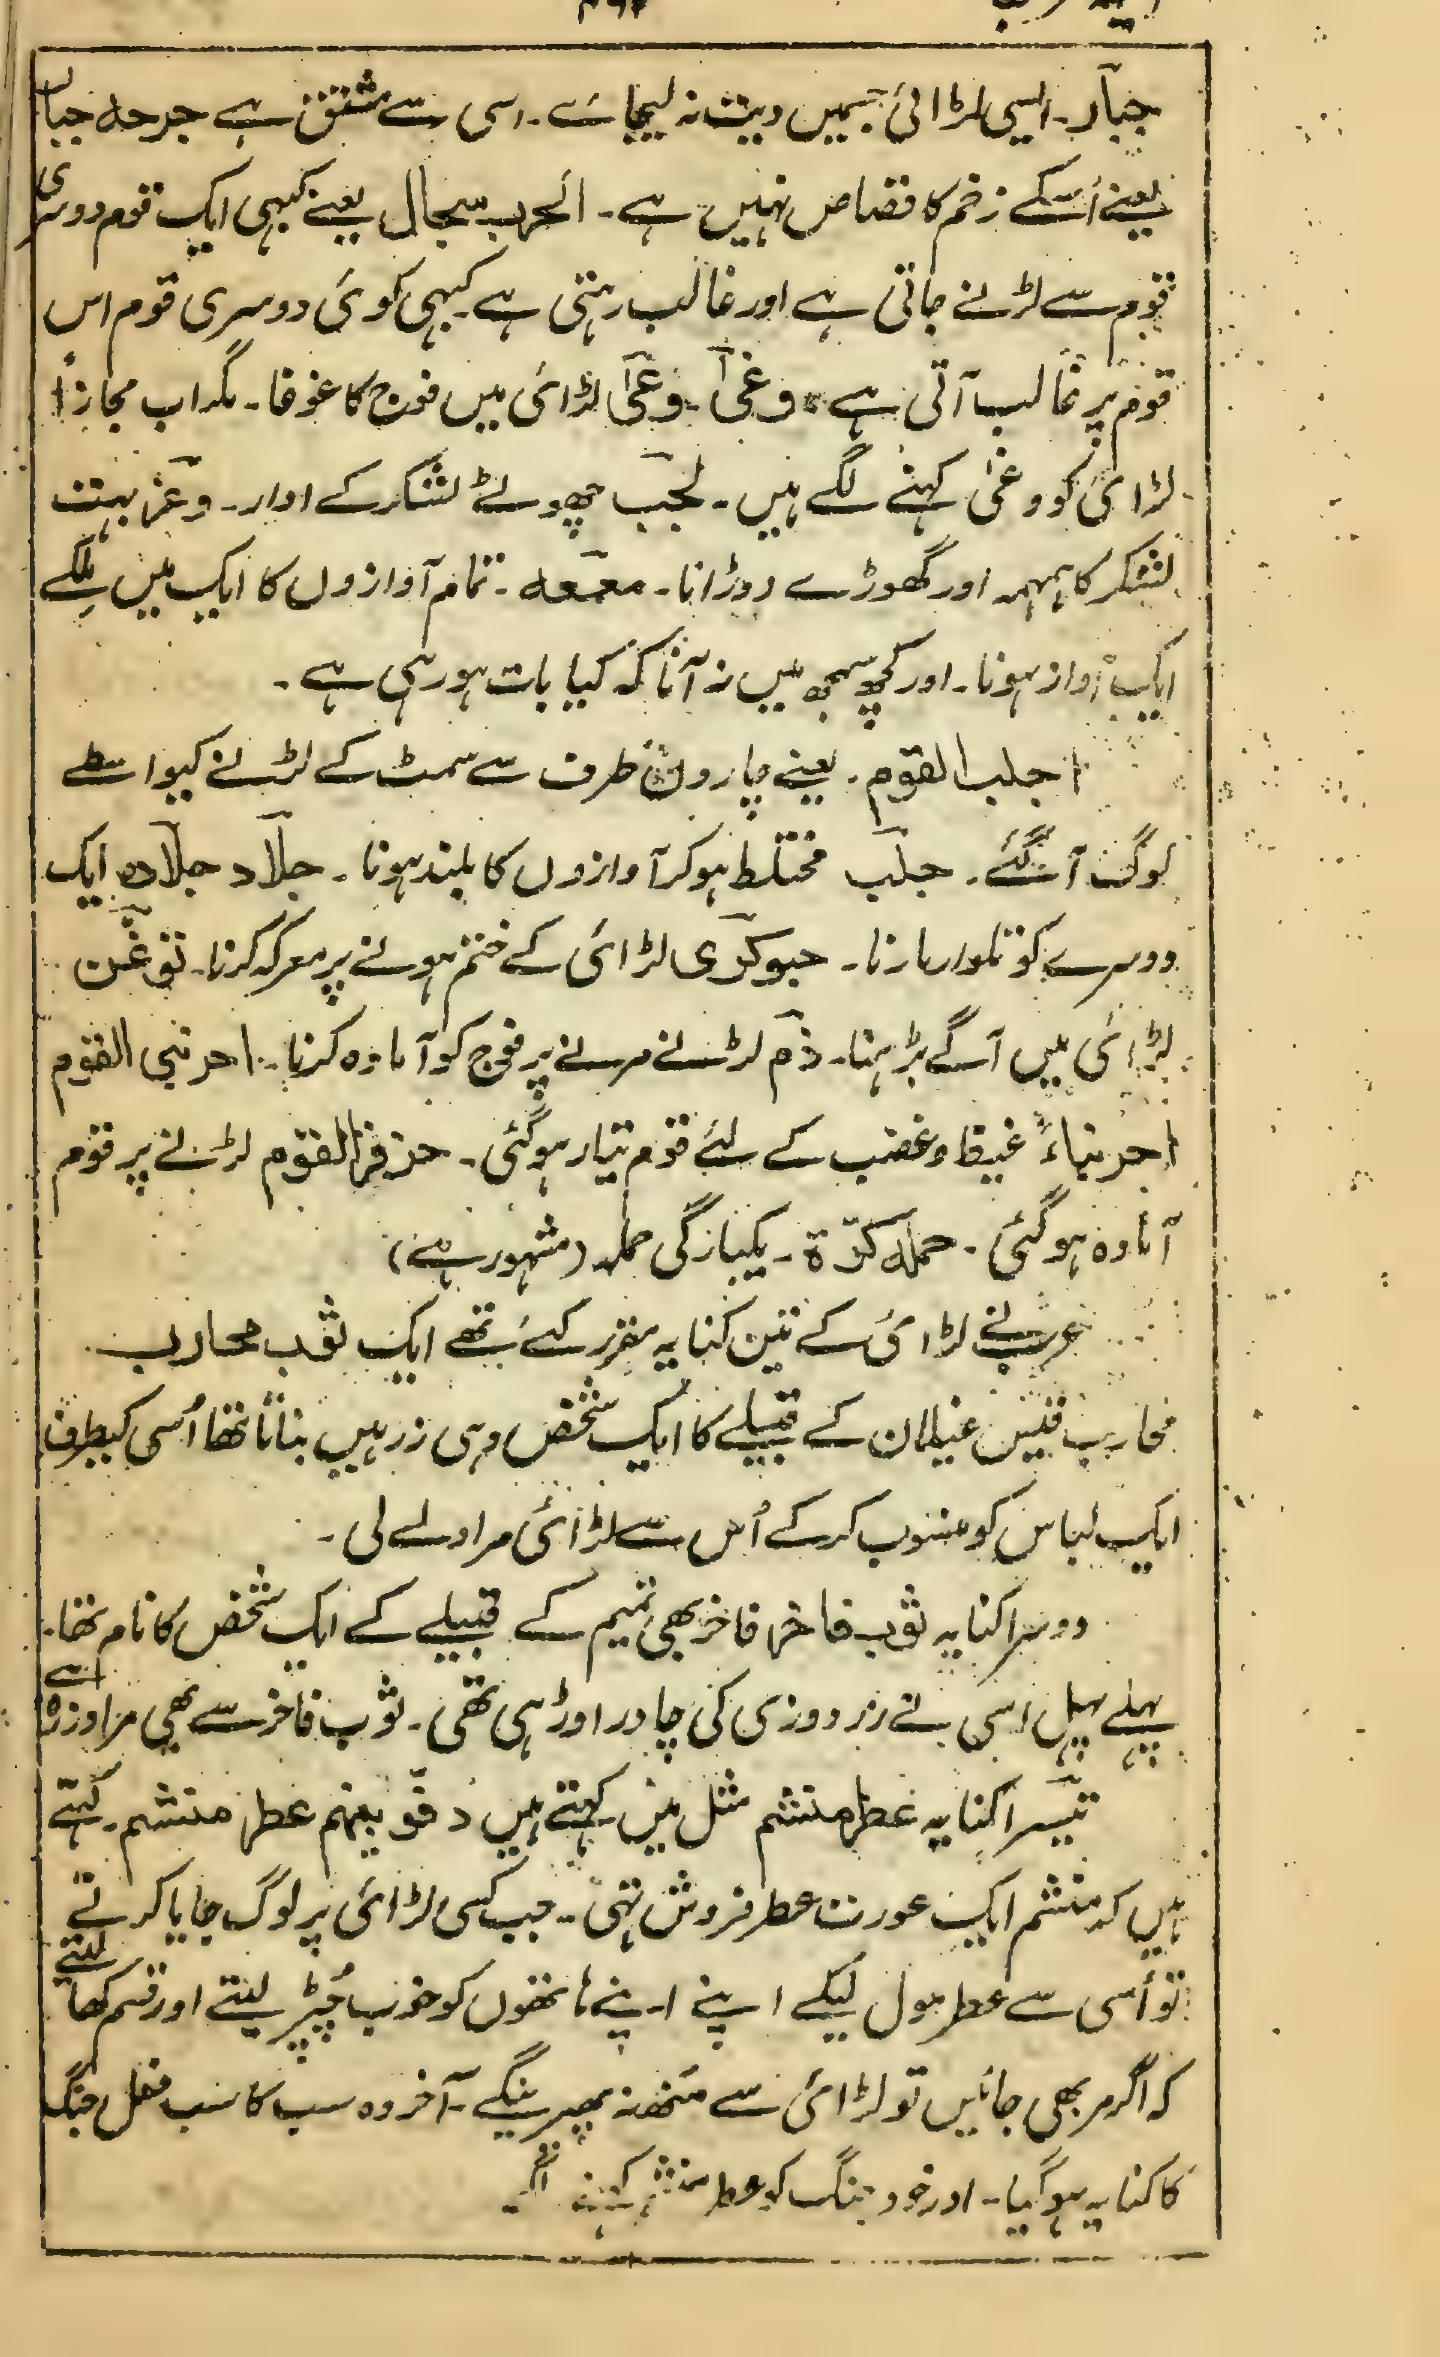 جبار۔ ایسی لڑائی جسمیں دیت نہ لیجائے۔ اسی سے مشتق ہے جرحہ جبار
یعنے اُسکے زخم کا قصاص نہیں ہے۔ الحرب سجال یعنے کبہی ایک قوم دوسری
قوم سے لڑنے جاتی ہے اور غالب رہتی ہے۔ کبہی کوئی دوسری قوم اس
قوم پر غالب آتی ہے۔ وغیٰ۔ وعیٰ لڑائی میں فوج کا غوغا۔ مگر اب مجازاً
لڑائی کو وغیٰ کہنے لگے ہیں۔ لجب چھوٹے لشکر کے ادار۔ وغر بہت
لشکر کا ہمہمہ اور گھوڑے دوڑانا۔ معمعہ۔ تمام آوازوں کا ایک میں ملکے
ایک آواز ہونا۔ اور کچھ سمجھ میں نہ آنا کہ کیا بات ہو رہی ہے۔
اجلب القوم۔ یعنے چاروں طرف سے سمٹ کے لڑنے کیواسطے
لوگ آگئے۔ جلب مختلط ہوکر آوازوں کا بلند ہونا۔ جلاد جلادہ ایک
دوسرے کو تلوار مارنا۔ حبوکری لڑائی کے ختم ہونے پر معرکہ کرنا۔ توغن
لڑائی میں آگے بڑہنا۔ ذمر لڑنے مرنے پر فوج کو آمادہ کرنا۔ احرنبی القوم
احرنباءً غیظ و غضب کے لئے قوم تیار ہوگئی۔ حزفر القوم لڑنے پر قوم
آمادہ ہوگئی۔ حملہ کرّة۔ یکبارگی حملہ (مشہور ہے)
عرب نے لڑائی کے تین کنایہ مقرر کئے تھے ایک ثوب محارب
محارب قیس عیلان کے قبیلے کا ایک شخص وہی زرہیں بناتا تھا اُسی کیطرف
ایک لباس کو منسوب کرکے اُس سے لڑائی مراد لے لی۔
دوسرا کنایہ ثوب فاخر۔ فاخر بھی تمیم کے قبیلے کے ایک شخص کا نام تھا۔
پہلے پہل اسی نے زردوزی کی چادر اوڑہی تھی۔ ثوب فاخر سے بھی مراد زرہ ہے
تیسرا کنایہ عطر منشم مثل میں کہتے ہیں دقّو بینہم عطر منشم۔ کہتے
ہیں کہ منشم ایک عورت عطر فروش تہی۔ جب کسی لڑائی پر لوگ جایا کرتے
تو اُسی سے عطر مول لیکے اپنے اپنے ہاتھوں کو خوب چُپڑ لیتے اور قسم کھا لیتے
کہ اگر مر بھی جائیں تو لڑائی سے منھ نہ پھیرینگے۔ آخر وہ سب کا سب فعل جنگ
کا کنایہ ہوگیا۔ اور خود جنگ کو عطر منشم کہنے لگے۔